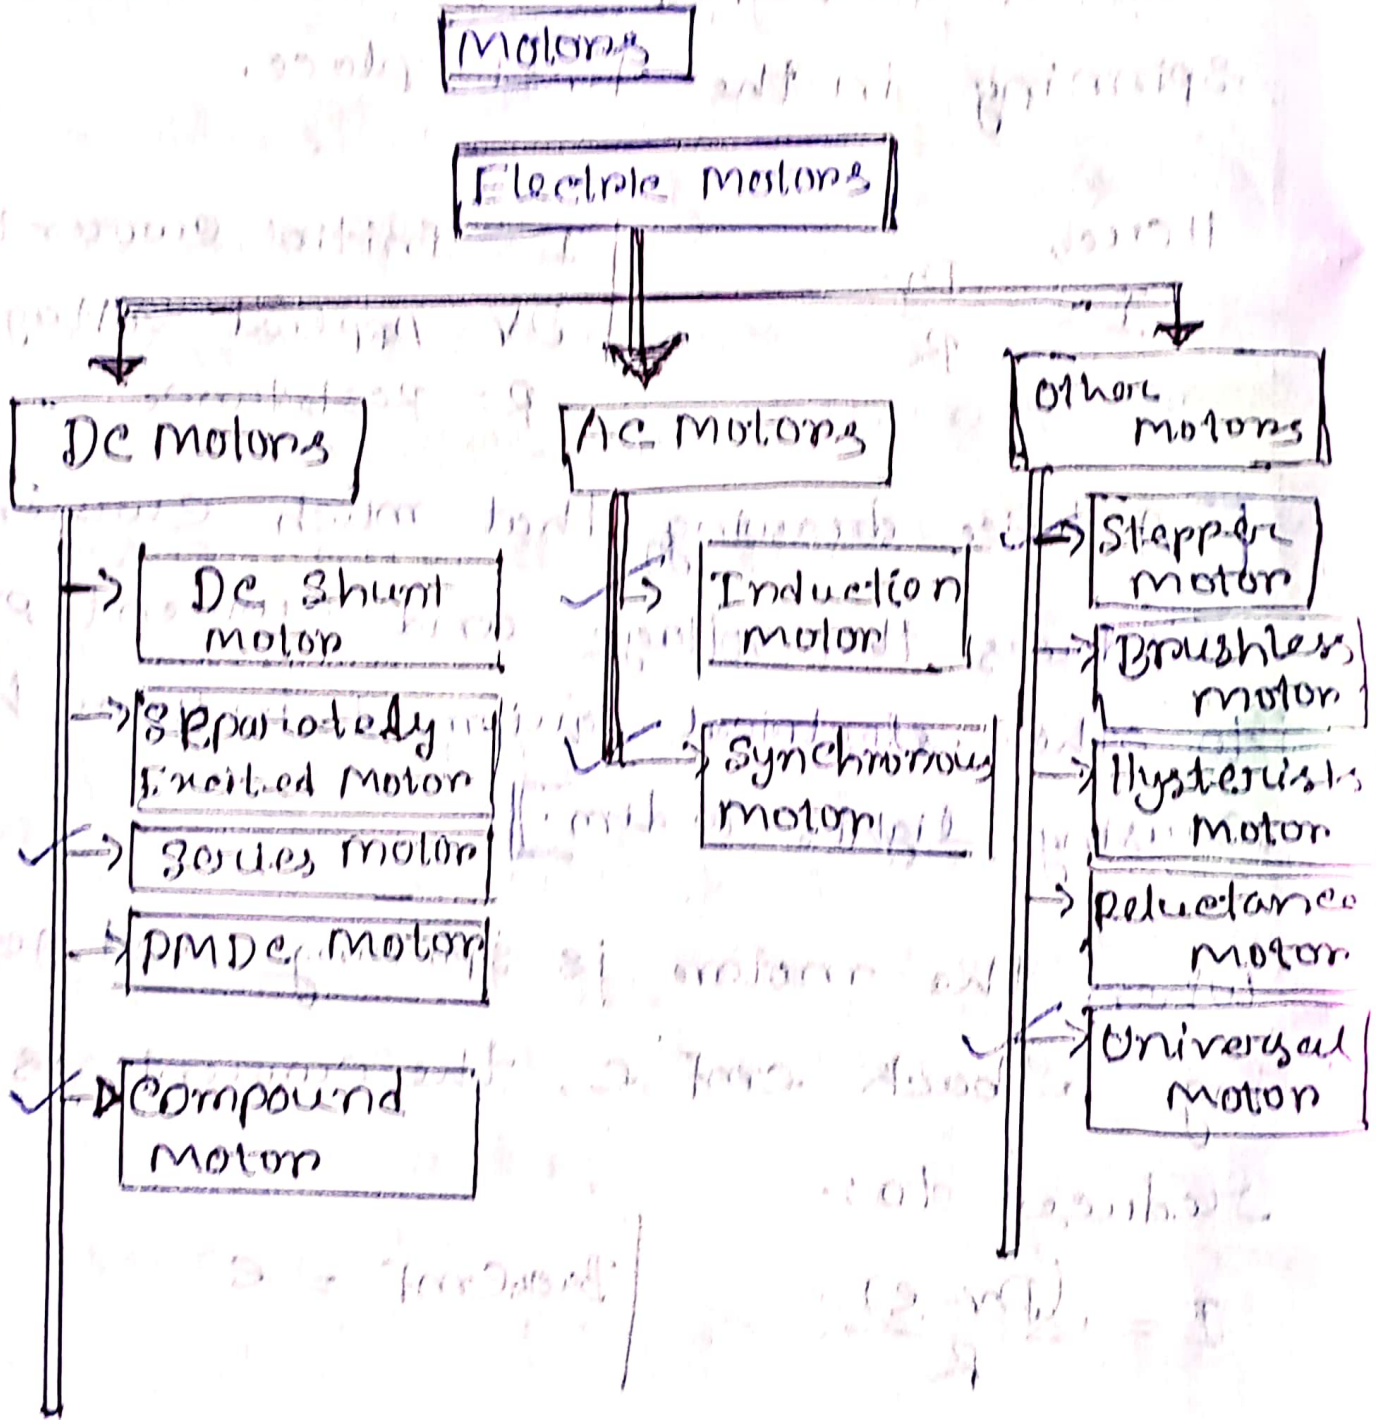 Motors
Electric Motors
DC Motors
AC Motors
Other
Motors
DC Shunt
Motor
Separately
Excited Motor
Series Motor
PMDC Motor
Compound
Motor
Induction
Motor
Synchronous
Motor
Stepper
Motor
Brushless
Motor
Hysterisis
Motor
Reluctance
Motor
Universal
Motor